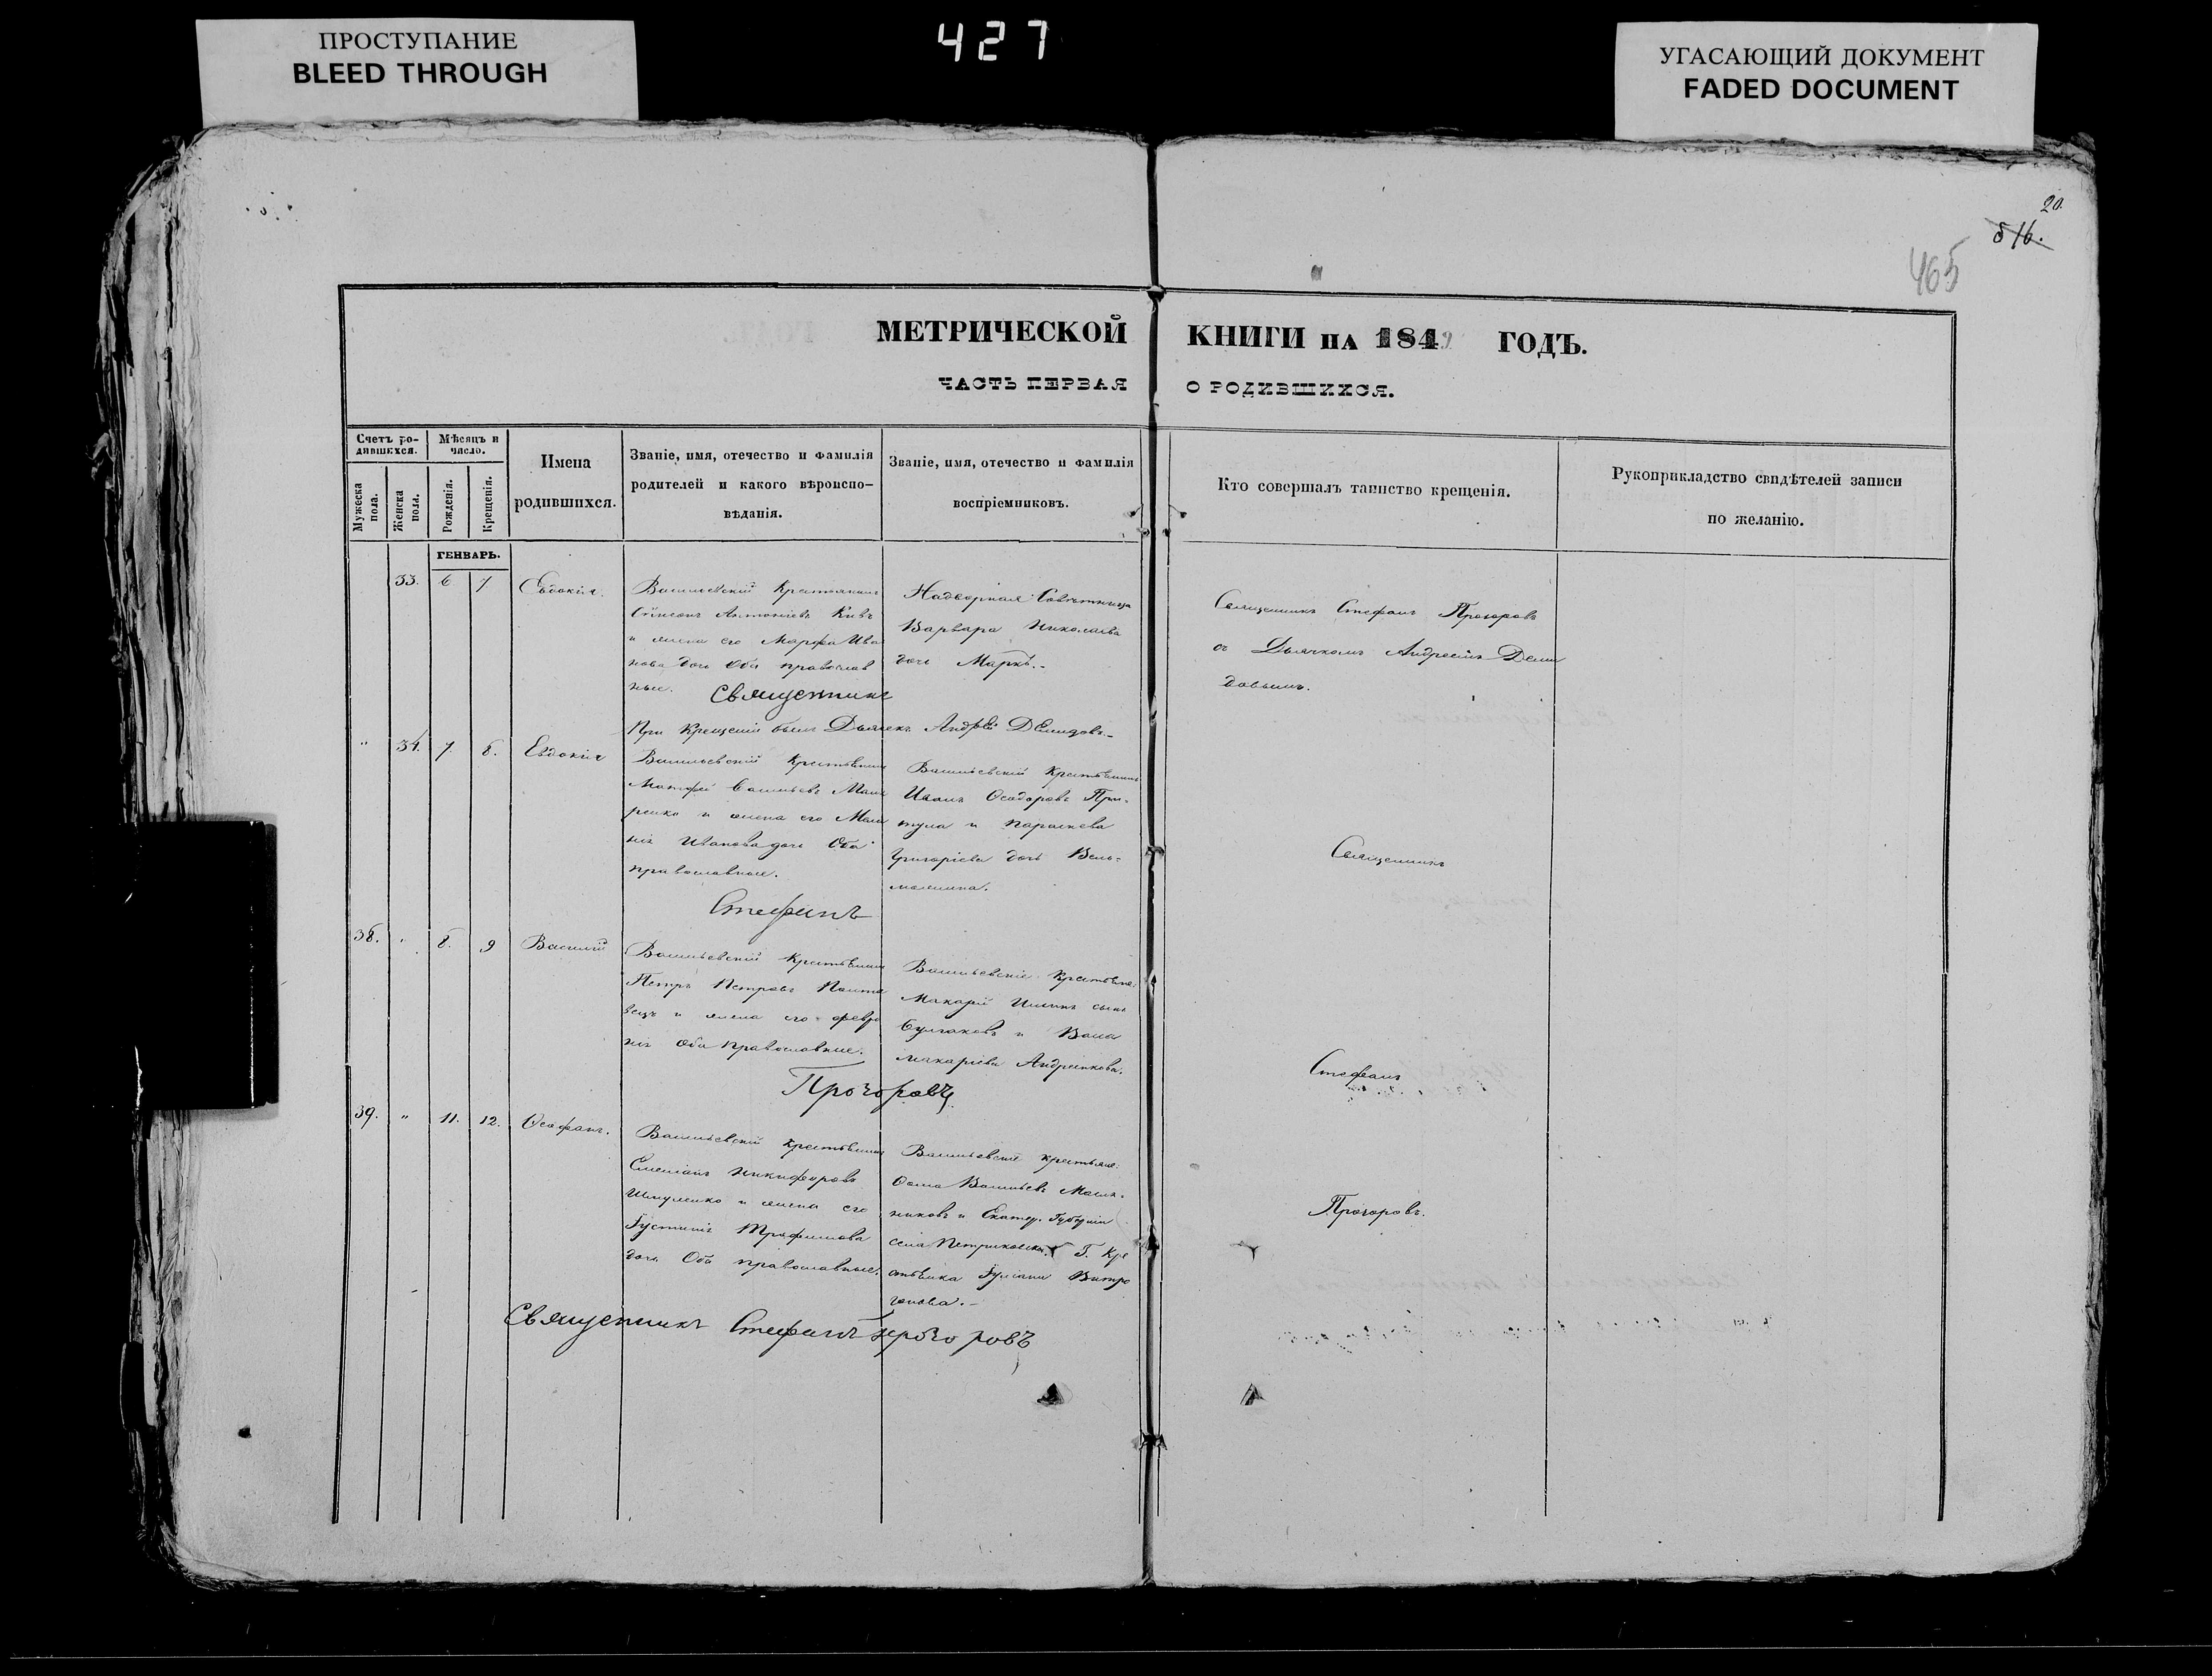 ПРОСТУПАНИЕ
BLEED THROUGH
427
УГАСАЮЩИЙ ДОКУМЕНТ
FADED DOCUMENT
20.
516.
465
МЕТРИЧЕСКОЙ КНИГИ НА 1849 ГОДЪ.
ЧАСТЬ ПЕРВАЯ О РОДИВШИХСЯ.
Счетъ ро-
дившихся.
Мужеска
пола.
Женска
пола.
Мѣсяцъ и
число.
Рожденія.
Крещенія.
Имена
родившихся.
Званіе, имя, отечество и фамилія
родителей и какого вѣроиспо-
вѣданія.
Званіе, имя, отечество и фамилія
воспріемниковъ.
Кто совершалъ таинство крещенія.
Рукоприкладство свидѣтелей записи
по желанію.
ГЕНВАРЬ.
33. 6 7 Евдокія.
Васильевскій Крестьянинъ
Антоніевъ
и жена его Марфа Ива
нова дочь Оба православ
ные.
Надворная Совѣтница
Варвара Николаева
дочь Маркъ.-
Священникъ Стефанъ Прохоровъ
съ Дьячкомъ Андреемъ Деми
довымъ.
Священникъ
При Крещеніи былъ Дьячекъ Андрей Демидовъ.-
" 34. 7. 8. Евдокія
Васильевскій Крестьянинъ
Матфей Васильевъ
ренко и жена его Мела
нія Иванова дочь Оба
православные.
Васильевскій Крестьянинъ
Иванъ Ѳеодоровъ При-
тула и Параскева
Григоріева дочь Вель-
можина.
Священникъ
Стефанъ
38. " 8. 9 Василій
Васильевскій Крестьянинъ
Петръ Петровъ Полта
вецъ и жена его Февро
нія Оба Православные.
Васильевскіе Крестьяне:
Макарій Ильинъ сынъ
Булгаковъ и
Макаріева Андреикова.
Стефанъ
Прохоровъ
39. " 11. 12. Ѳеофанъ.
Васильевскій крестьянинъ
Емеліанъ Никифоровъ
Шпуленко и жена его
Іустинія Трофимова
дочь Оба православные.
Васильевскіе крестьяне:
Ѳома Васильевъ Масль-
никовъ и Екатер. Губерніи
села Петриковки Г. Кре
стьянка Іуліанія Витро
гонова.-
Прохоровъ.
Священникъ Стефанъ Прохоровъ